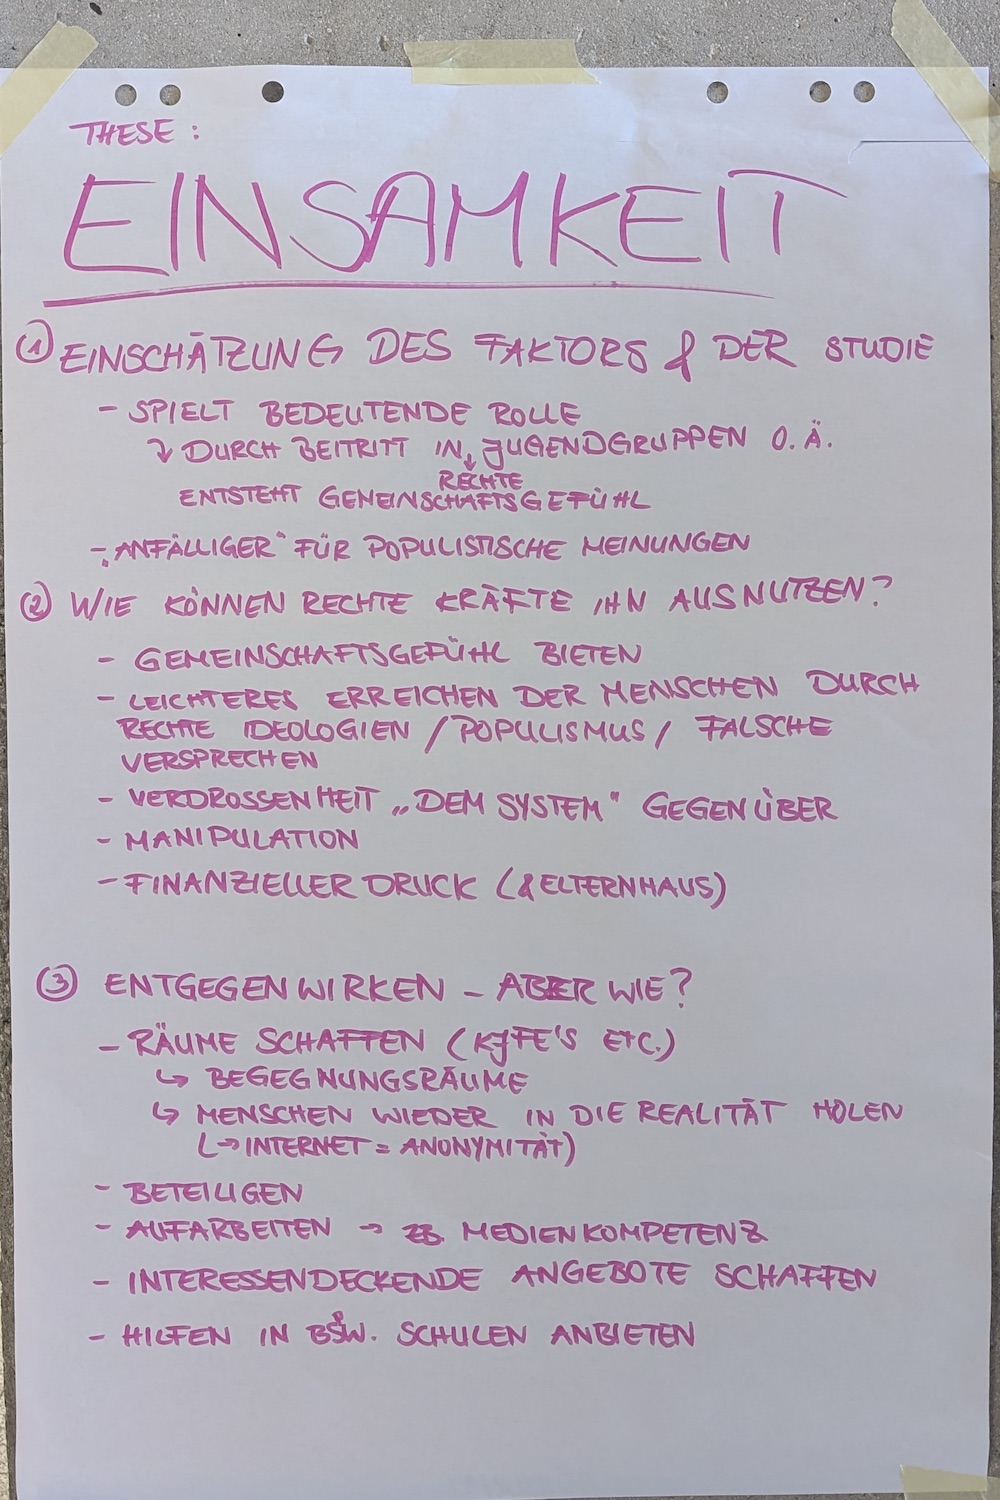 THESE:
EINSAMKEIT
① EINSCHÄTZUNG DES FAKTORS & DER STUDIE
- SPIELT BEDEUTENDE ROLLE
↳ DURCH BEITRITT IN JUGENDGRUPPEN O.Ä.
↓ RECHTE
ENTSTEHT GEMEINSCHAFTSGEFÜHL
- „ANFÄLLIGER“ FÜR POPULISTISCHE MEINUNGEN
② WIE KÖNNEN RECHTE KRÄFTE IHN AUSNUTZEN?
- GEMEINSCHAFTSGEFÜHL BIETEN
- LEICHTERES ERREICHEN DER MENSCHEN DURCH
RECHTE IDEOLOGIEN / POPULISMUS / FALSCHE
VERSPRECHEN
- VERDROSSENHEIT „DEM SYSTEM“ GEGENÜBER
- MANIPULATION
- FINANZIELLER DRUCK (& ELTERNHAUS)
③ ENTGEGENWIRKEN - ABER WIE?
- RÄUME SCHAFFEN (KJFE'S ETC.)
↳ BEGEGNUNGSRÄUME
↳ MENSCHEN WIEDER IN DIE REALITÄT HOLEN
(→ INTERNET = ANONYMITÄT)
- BETEILIGEN
- AUFARBEITEN → ZB. MEDIENKOMPETENZ
- INTERESSENDECKENDE ANGEBOTE SCHAFFEN
- HILFEN IN BSPW. SCHULEN ANBIETEN